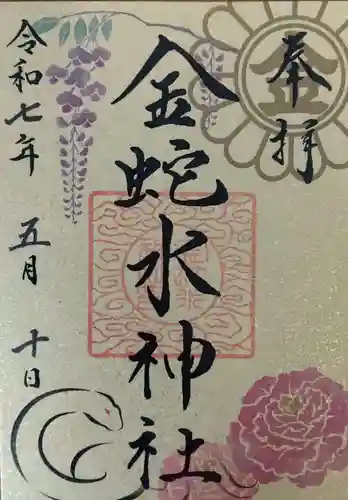 奉拝
金
金蛇水神社
令和七年 五月 十日